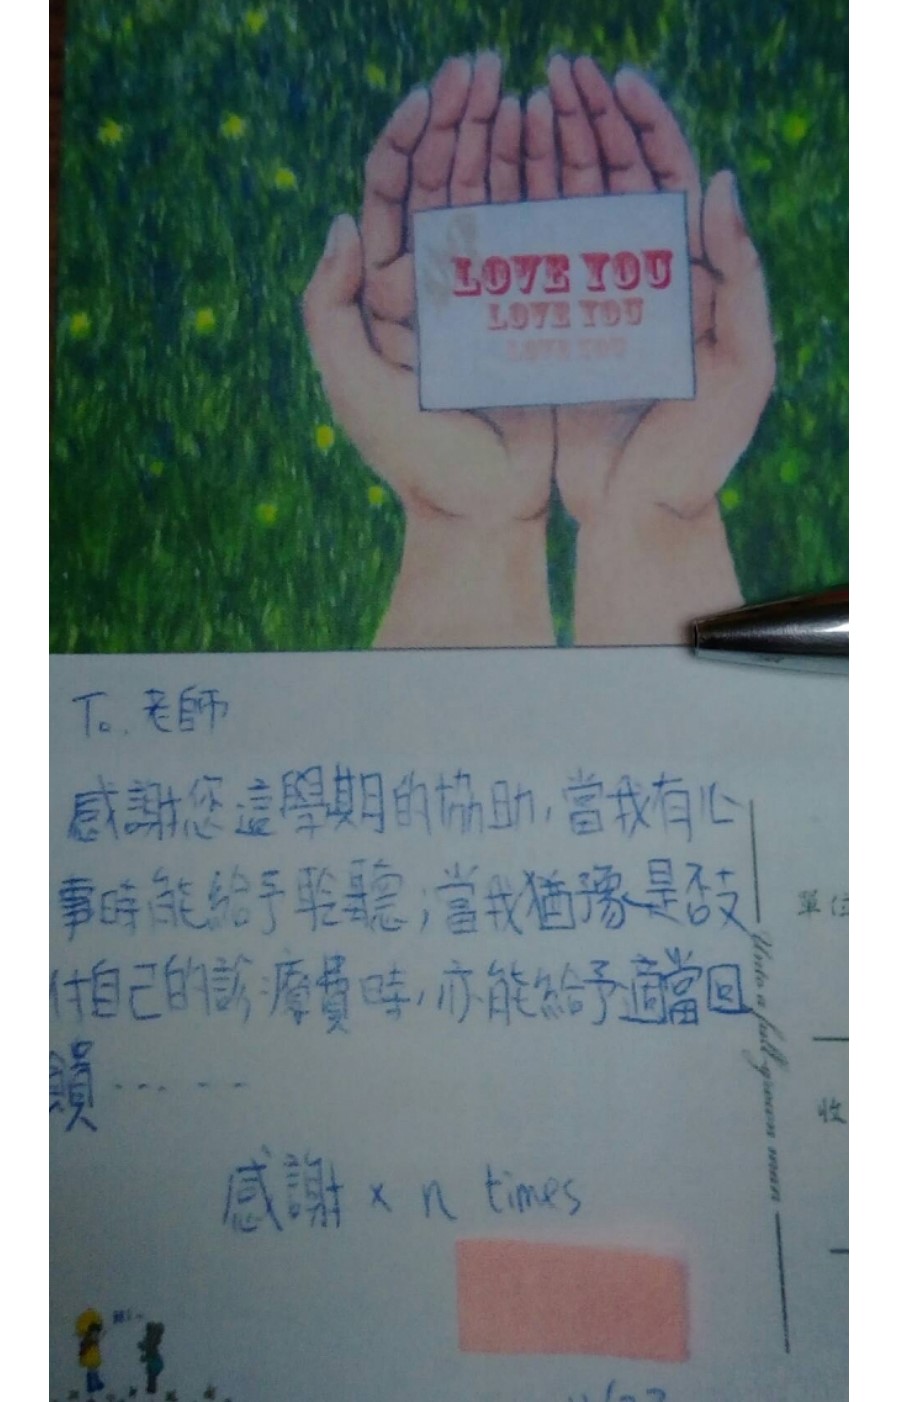 LOVE YOU
LOVE YOU
LOVE YOU
To. 老師
感謝您這學期的協助,當我有心
事時能給予聆聽;當我猶豫是否支
付自己的診療費時,亦能給予適當回
饋……
感謝 x n times
Unto a full grown man
單位
收